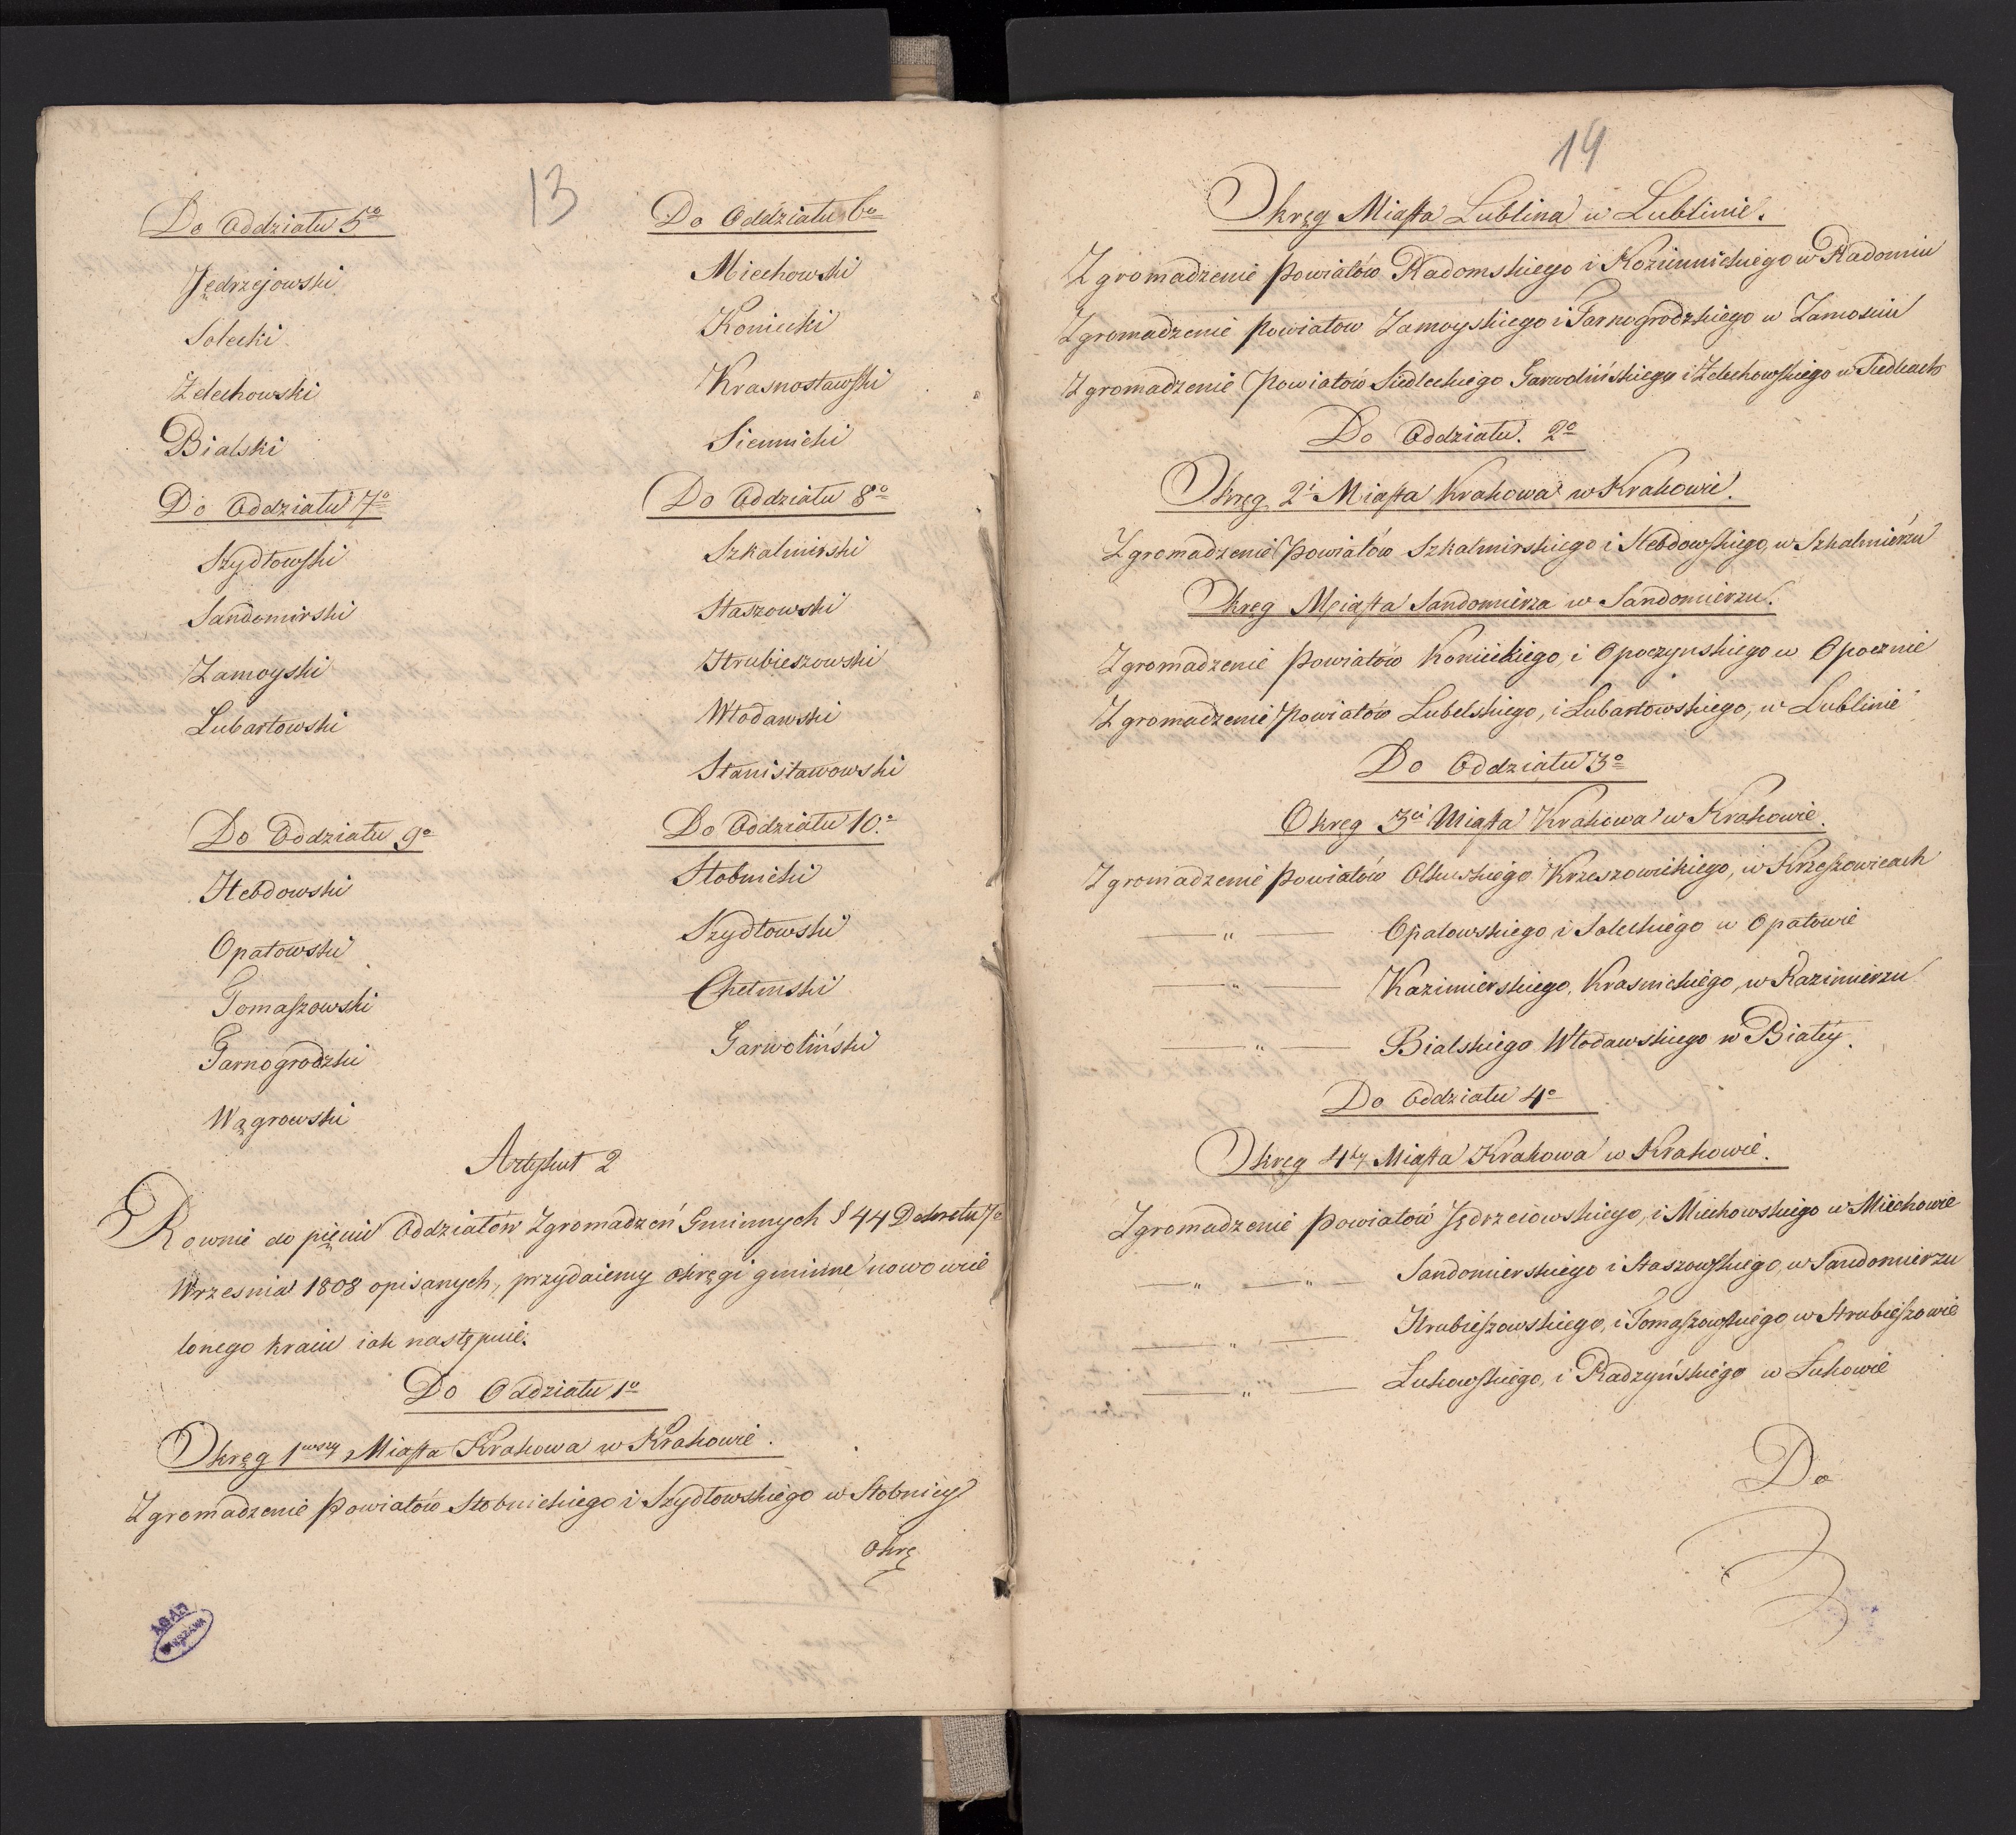 13
Do Oddziału 5º
Jędrzejowski
Solecki
Zelechowski
Bialski
Do Oddziału 6º
Miechowski
Koniecki
Krasnostawski
Siennicki
Do Oddziału 7º
Szydłowski
Sandomirski
Zamoyski
Lubartowski
Do Oddziału 8º
Szkalmirski
Staszowski
Hrubieszowski
Włodawski
Stanisławowski
Do Oddziału 9º
Hebdowski
Opatowski
Tomaszowski
Tarnogrodzki
Wągrowski
Do Oddziału 10º
Stobnicki
Szydłowski
Chełmski
Garwoliński
Artykuł 2
Rownie do pięciu Oddziałów Zgromadzeń Gminnych § 44 Dekretu 7º
Wrzesnia 1808 opisanych, przydaiemy okręgi gminne nowo wcie
lonego kraiu iak następuie.
Do Oddziału 1º
Okręg 1wszy Miasta Krakowa w Krakowie.
Zgromadzenie Powiatów Stobnickiego i Szydłowskiego w Stobnicy
Okrę
AGAD
WARSZAWA
14
Okręg Miasta Lublina w Lublinie.
Zgromadzenie Powiatów Radomskiego i Kozienickiego w Radomiu
Zgromadzenie Powiatow Zamoyskiego i Tarnogrodzkiego w Zamosciu
Zgromadzenie Powiatów Siedleckiego Garwolińskiego i Zelechowskiego w Siedlcach
Do Oddziału. 2º
Okręg 2i Miasta Krakowa w Krakowie.
Zgromadzenie Powiatów Szkalmirskiego i Hebdowskiego, w Szkalmierzu
Okręg Miasta Sandomierza w Sandomierzu.
Zgromadzenie Powiatów Konieckiego, i Opoczynskiego w Opocznie
Zgromadzenie Powiatów Lubelskiego, i Lubartowskiego, w Lublinie
Do Oddziału 3º
Okręg 3ci Miasta Krakowa w Krakowie.
Zgromadzenie Powiatów Olkuskiego Krzeszowickiego, w Krzeszowicach
— " — Opatowskiego i Soleckiego w Opatowie
— " — Kazimierskiego, Krasnickiego, w Kazimierzu
— " — Bialskiego Włodawskiego w Białey.
Do Oddziału 4º
Okręg 4ty Miasta Krakowa w Krakowie.
Zgromadzenie Powiatów Jędrzeiowskiego, i Miechowskiego w Miechowie
— " — " — Sandomierskiego i Staszowskiego, w Sandomierzu
— " — Hrubieszowskiego, i Tomaszowskiego w Hrubieszowie
— " — Łukowskiego, i Radzyńskiego w Łukowie
Do